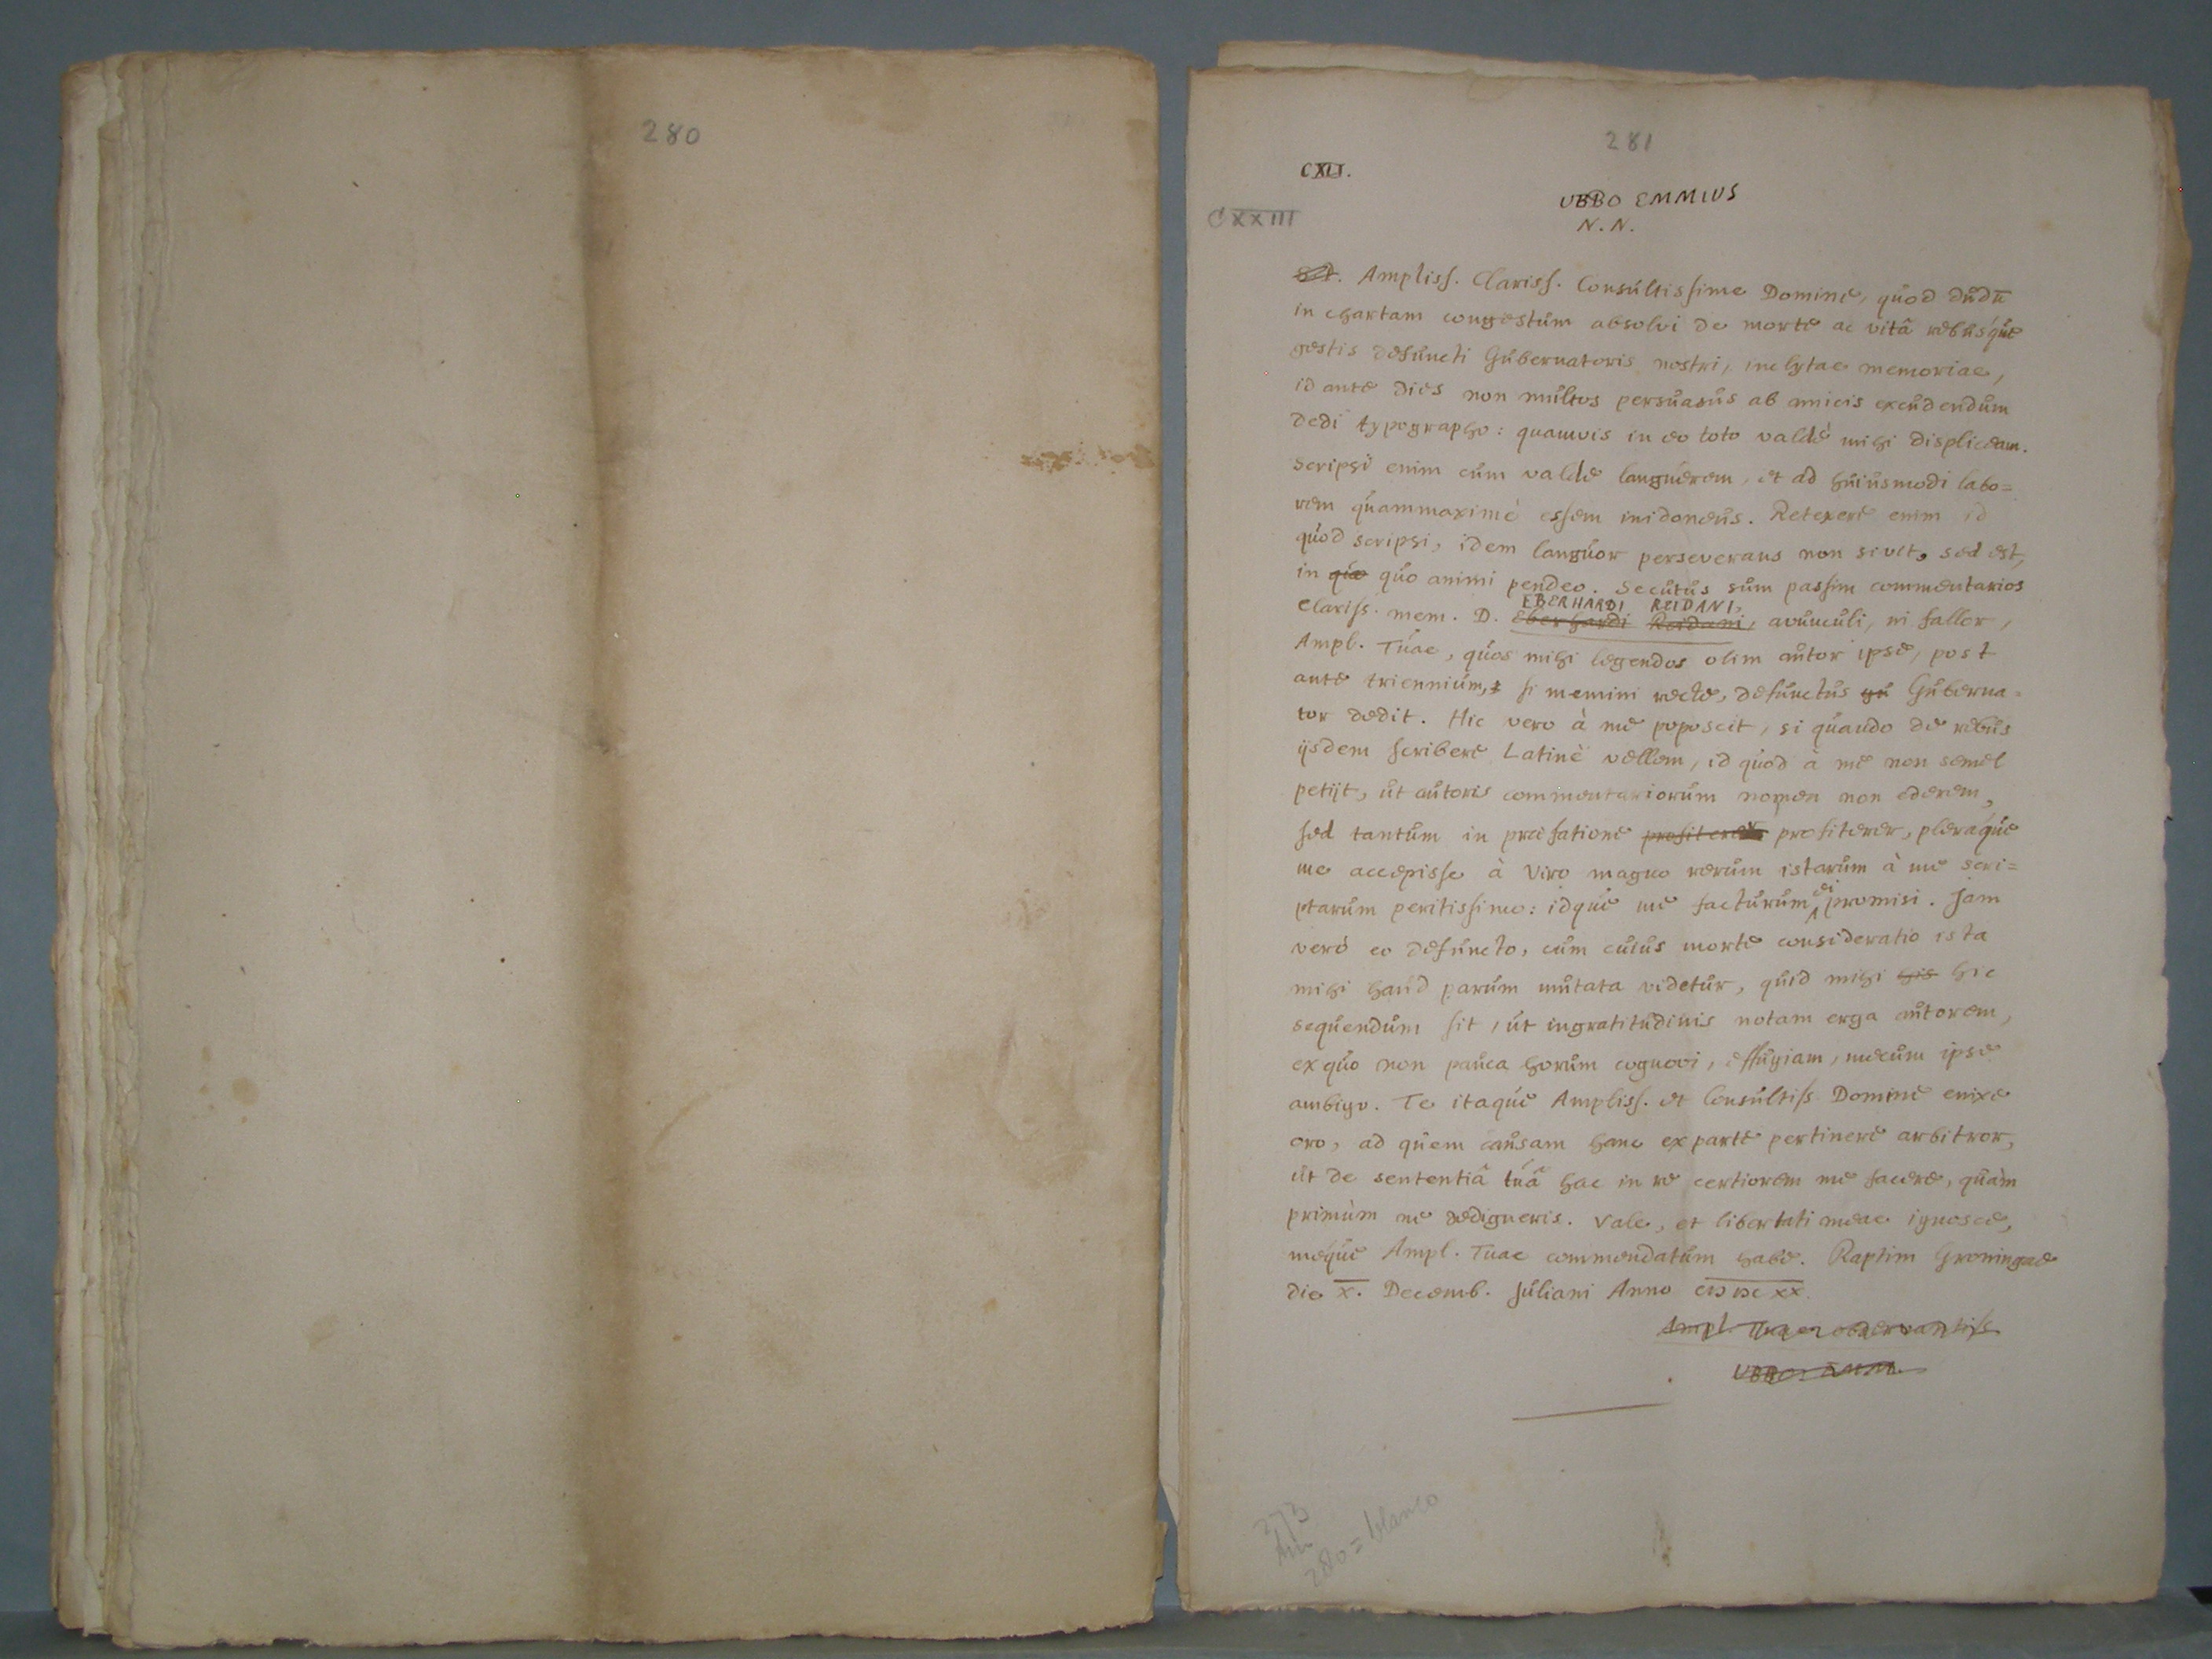 280
281
CXII.
CXXIII
UBBO EMMIUS
N. N.
Ampliss. Clariss. Consultissime Domine, quod dudū
in chartam congestum absolvi de morte ac vitâ rebusque
gestis defuncti Gubernatoris nostri, inclytae memoriae,
id ante dies non multos persuasus ab amicis excudendum
dedi typographo: quamvis in eo toto valdè mihi displiceam.
Scripsi enim cum valde languerem, et ad huiusmodi labo=
rem quammaximè essem inidoneus. Retexere enim id
quod scripsi, idem languor perseverans non sivit, sed est,
in quo animi pendeo. Secutus sum passim commentarios
EBERHARDI REIDANI,
Clariss. mem. D. Eberhardi Reidani, avunculi, ni fallor,
Ampl. Tuae, quos mihi legendos olim autor ipse, post
ante triennium, si memini recte, defunctus gu Guberna=
tor dedit. Hic vero à me poposcit, si quando de rebus
ijsdem scribere Latinè vellem, id quod à me non semel
petijt, ut autoris commentariorum nomen non ederem,
sed tantum in praefatione profiterer profiterer, pleraque
me accepisse à Viro magno rerum istarum à me scri=
ptarum peritissimo: idque me facturum ei promisi. Jam
verò eo defuncto, cum cuius morte consideratio ista
mihi haud parum mutata videtur, quid mihi his hic
sequendum sit, ut ingratitudinis notam erga autorem,
ex quo non pauca horum cognovi, effugiam, mecum ipse
ambigo. Te itaque Ampliss. et Consultiss. Domine enixe
oro, ad quem causam hanc ex parte pertinere arbitror,
ut de sententiâ tuâ hac in re certiorem me facere, quàm
primùm ne dedigneris. Vale, et libertati meae ignosce,
meque Ampl. Tuae commendatum habe. Raptim Groningae
die X. Decemb. Juliani Anno CIↃ IↃC XX.
Ampl. Tuae observantiss.
UBBO EMM.
273
280 = blanco